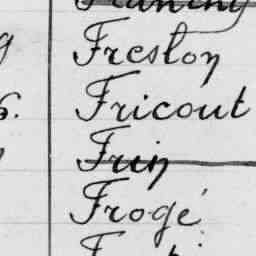 Freston
Fricout
Frin
Frogé